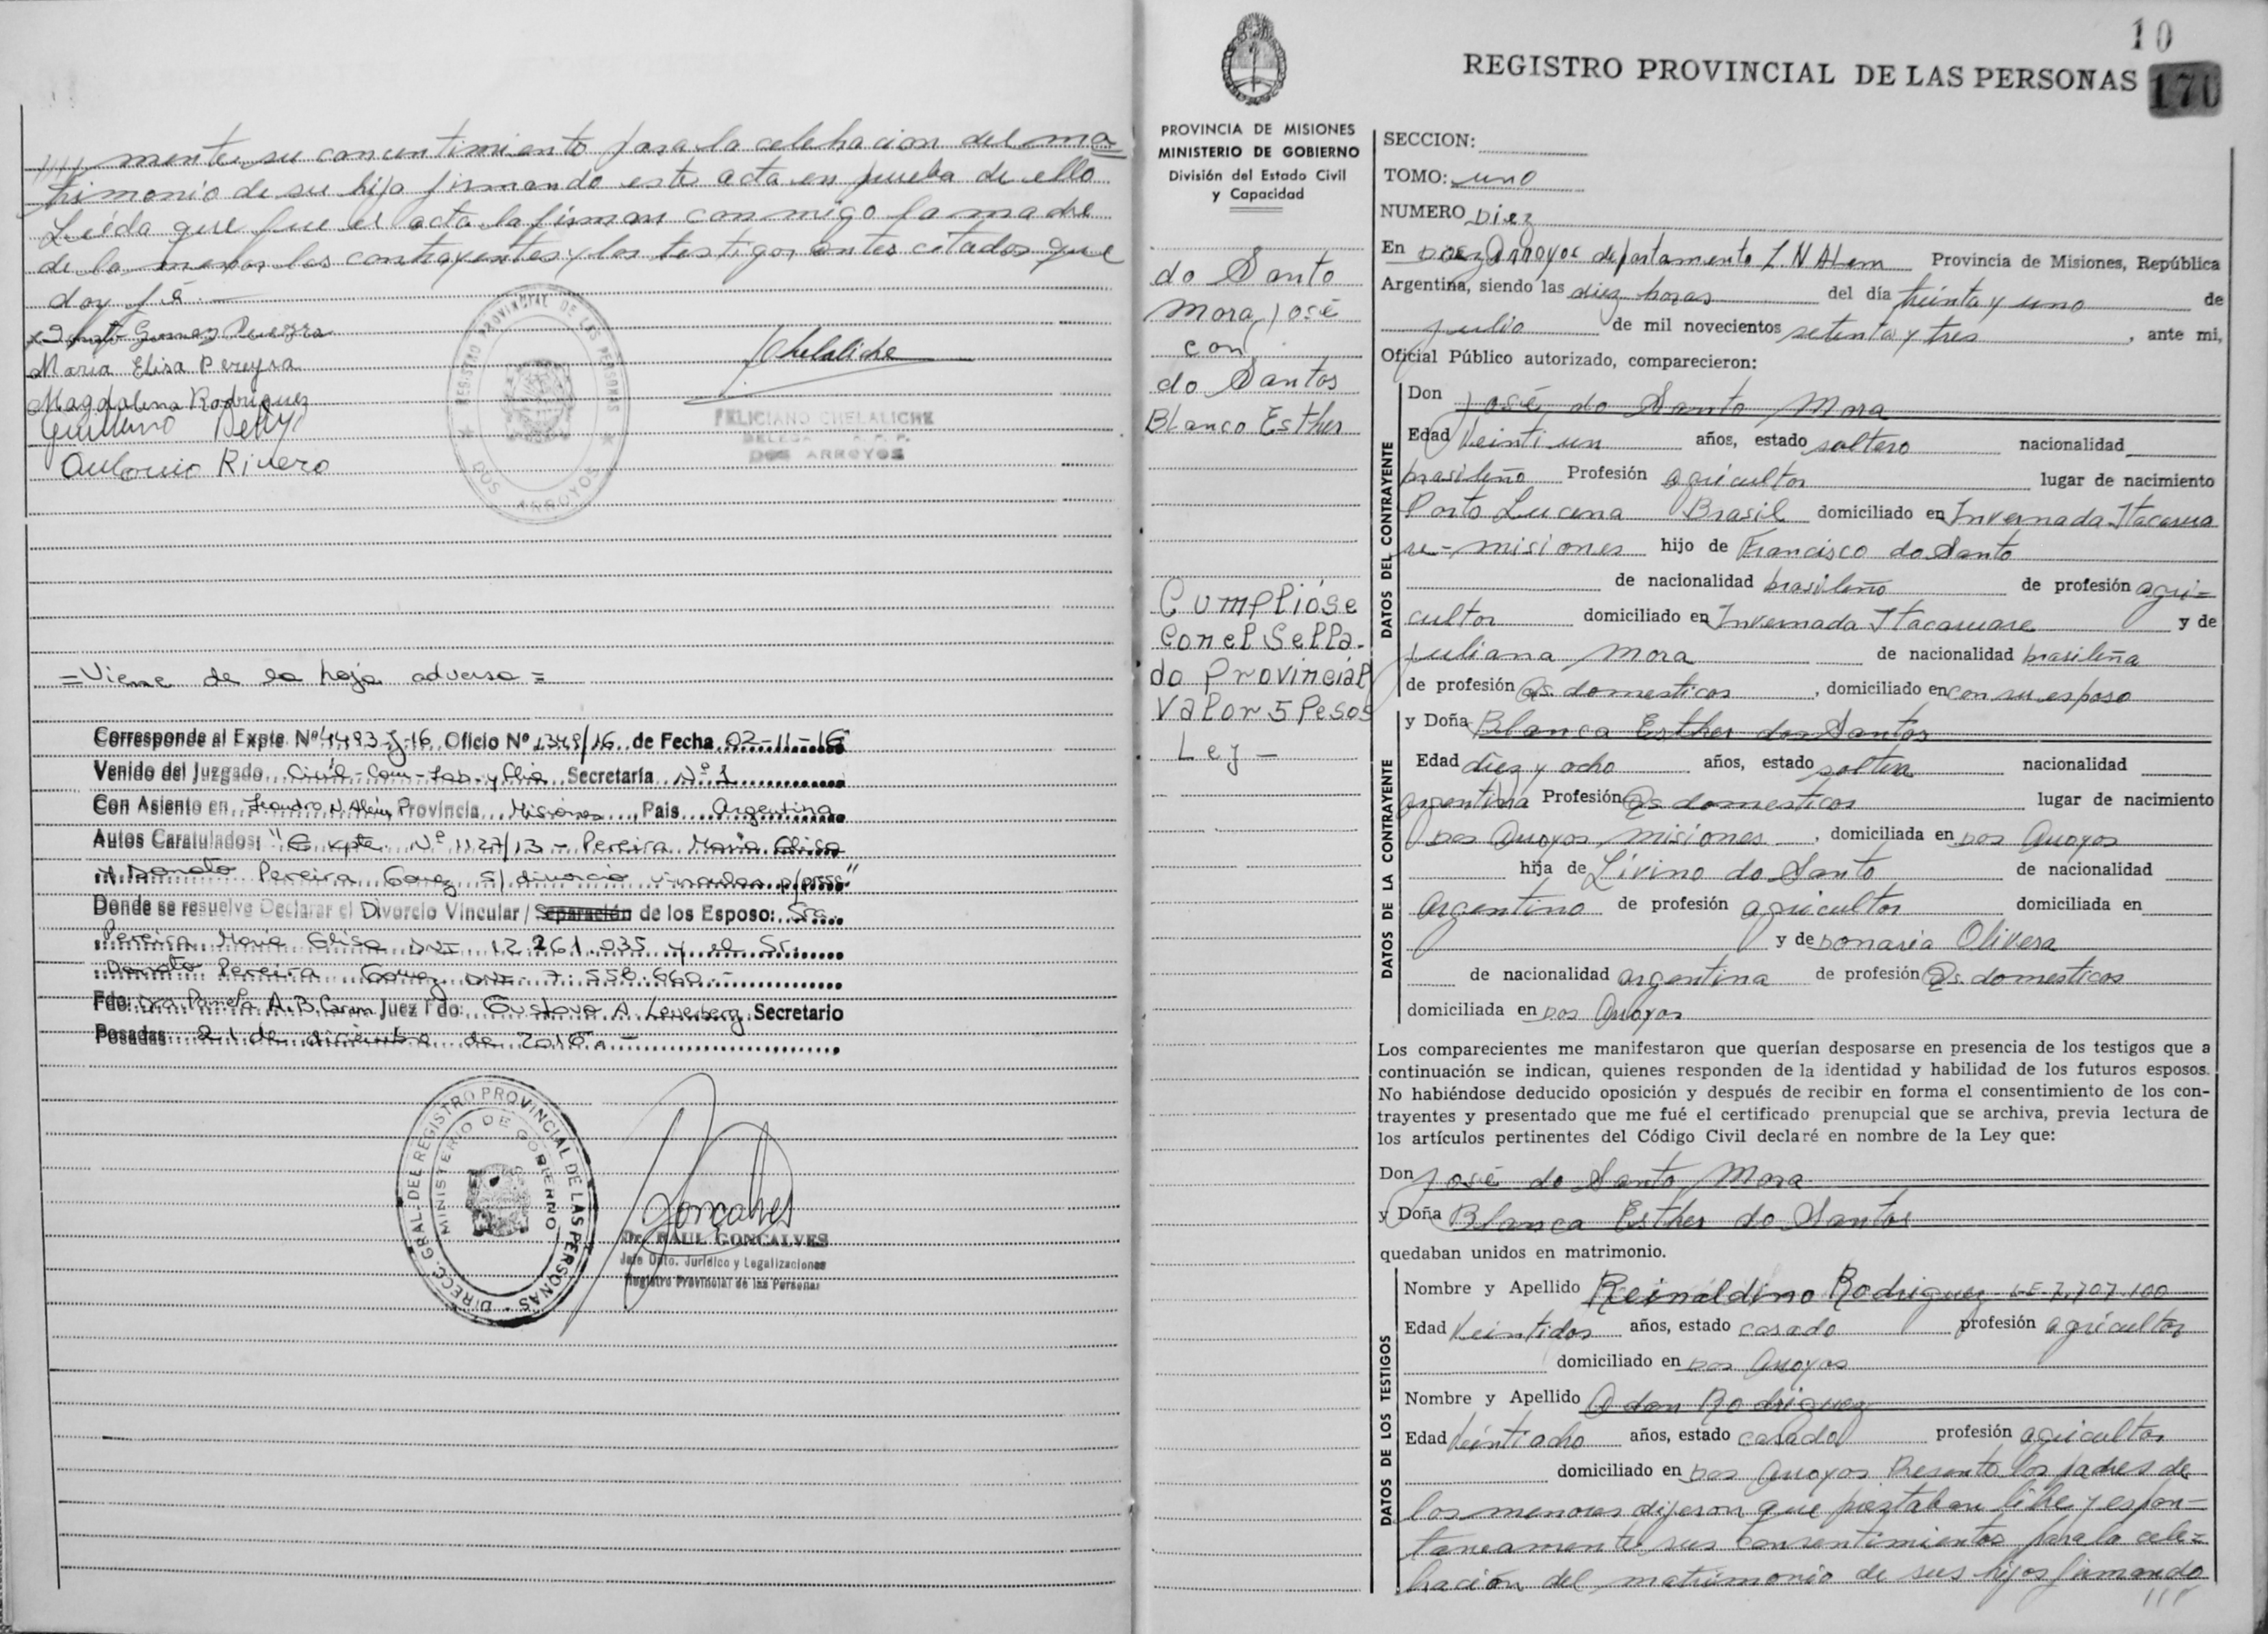 //// mente su concentimiento para la celebracion del ma
trimonio de su hija firmando este acta en prueba de ello
Leída que fue el acta la firman conmigo la madre
de la menor los contrayentes y los testigos antes citados que
doy fé.
x Donato Gomez Pereyra
Maria Elisa Pereyra
Magdalena Rodriguez
Guillermo Betty
Antonio Rivero
REGISTRO PROVINCIAL DE LAS PERSONAS
★ DOS ARROYOS ★
FChelaliche
FELICIANO CHELALICHE
DELEGA R. P. P.
DOS ARROYOS
= Viene de la hoja adversa =
Corresponde al Expte. Nº 4493-J-16 Oficio Nº 1348/16 de Fecha 02-11-16
Venido del Juzgado Civil-Com-Lab. y Flia Secretaría Nº 1
Con Asiento en Leandro N. Além Provincia Misiones, País Argentina
Autos Caratulados: "Expte. Nº 1127/13 - Pereira Maria Elisa
Donato Pereira Gomez s/ divorcio vincular p/pres."
Donde se resuelve Declarar el Divorcio Vincular / Separación de los Esposo: Sra.
Pereira Maria Elisa DNI 12.261.035 y el Sr.
Donato Pereira Gomez DNI 7.558.660.-
Fdo: Dra Pamela A. B. Caram Juez Fdo: Gustavo A. Leverberg Secretario
Posadas 21 de diciembre de 2016.-
DIRECC. GRAL. DEL REGISTRO PROVINCIAL DE LAS PERSONAS
MINISTERIO DE GOBIERNO
Gonçalves
Dr. RAUL GONCALVES
Jefe Dpto. Jurídico y Legalizaciones
Registro Provincial de las Personas
10
REGISTRO PROVINCIAL DE LAS PERSONAS 170
PROVINCIA DE MISIONES
MINISTERIO DE GOBIERNO
División del Estado Civil
y Capacidad
do Santo
Mora, José
con
do Santos
Blanco Esther
Cumplióse
con el Sella-
do Provincial
Valor 5 Pesos
Ley -
SECCION:
TOMO: uno
NUMERO Diez
En Dos Arroyos departamento L N Alem Provincia de Misiones, República
Argentina, siendo las diez horas del día treinta y uno de
Julio de mil novecientos setenta y tres, ante mi,
Oficial Público autorizado, comparecieron:
DATOS DEL CONTRAYENTE
Don José do Santo Mora
Edad Veintiun años, estado soltero nacionalidad
brasileño Profesión agricultor lugar de nacimiento
Porto Lucena Brasil domiciliado en Invernada Itacarua
re - misiones hijo de Francisco do Santo
de nacionalidad brasileño de profesión agri-
cultor domiciliado en Invernada Itacaruare y de
Juliana Mora de nacionalidad brasileña
de profesión Qs. domesticos, domiciliado en con su esposo
DATOS DE LA CONTRAYENTE
y Doña Blanca Esther dos Santos
Edad diez y ocho años, estado soltera nacionalidad
argentina Profesión Qs domesticos lugar de nacimiento
Dos Arroyos misiones, domiciliada en Dos Arroyos
hija de Livino do Santo de nacionalidad
argentino de profesión agricultor domiciliada en
y de Donaria Olivera
de nacionalidad argentina de profesión Qs. domesticos
domiciliada en Dos Arroyos
Los comparecientes me manifestaron que querían desposarse en presencia de los testigos que a
continuación se indican, quienes responden de la identidad y habilidad de los futuros esposos.
No habiéndose deducido oposición y después de recibir en forma el consentimiento de los con-
trayentes y presentado que me fué el certificado prenupcial que se archiva, previa lectura de
los artículos pertinentes del Código Civil declaré en nombre de la Ley que:
Don José do Santo Mora
y Doña Blanca Esther do Santos
quedaban unidos en matrimonio.
DATOS DE LOS TESTIGOS
Nombre y Apellido Reinaldino Rodriguez LE 7.707.100
Edad Veintidos años, estado casado profesión agricultor
domiciliado en Dos Arroyos
Nombre y Apellido Adan Rodriguez
Edad Veintiocho años, estado casado profesión agricultor
domiciliado en Dos Arroyos Presente los padres de
los menores dijeron que prestaban libre y espon-
taneamente sus consentimientos para la cele-
bración del matrimonio de sus hijos firmando
///